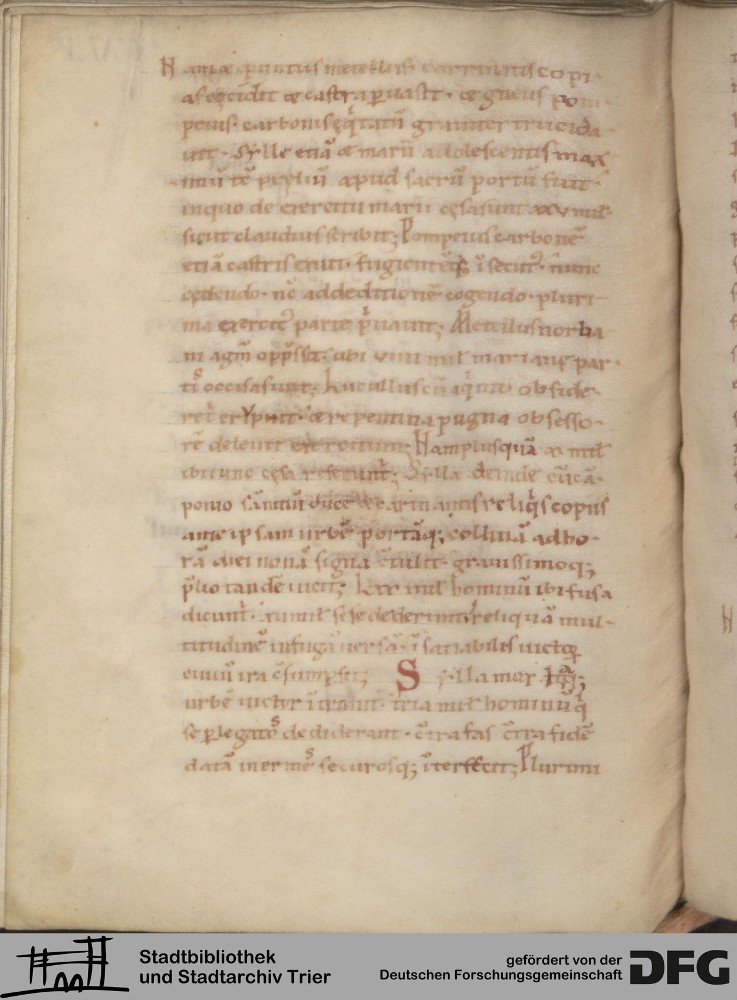 Namq; quintus metellus carrinatis copi
as occidit & castra puasit · & gneus pom
peius · carbonis eq̇tatū grauiter trucida
uit · Sylle etiā & marii adolescentis max
imū tē preliū apud sacrū portū fuit ·
inquo de exercitu marii cęsasunt xxv mil
sicut claudius scribit; Pompeius carbonē
etiā castris exuit · fugientēq; īsecut · nunc
cędendo · nc̄ addeditionē cogendo · pluri
ma exercit parte puauit; Metellus norba
ni agm̄ opp̄ssit · ubi viiii mil marianę par
tis occisasunt; Lucullus cū aq̇ntio obside
ret erYpuit · & repentina pugna obsesso
rē deleuit exercitum; Namplusquā x mil
ibi tunc cęsa referunt; Sylla deinde cū cā
ponio sānitiū duce & carinantis reliq̇s copiis
ante ipsam urbē portāq; collinā adho
rā diei nonā signa c̄tulit · grauissimoq;
p̄lio tandē uicit; Lxx mil hominū ibi fusa
dicunt · xii mil sese dediderunt reliquā mul
titudinē infugā uersā · īsatiabilis uictoꝝ
ciuiū ira c̄sumpsit; Sylla mox
urbē uictor ītrauit · tria mil hominū q̇
se p legatos dediderant · c̄tra fas c̄tra fidē
datā inermes securosq; īterfecit; Plurimi
Stadtbibliothek
und Stadtarchiv Trier
gefördert von der
Deutschen Forschungsgemeinschaft
DFG